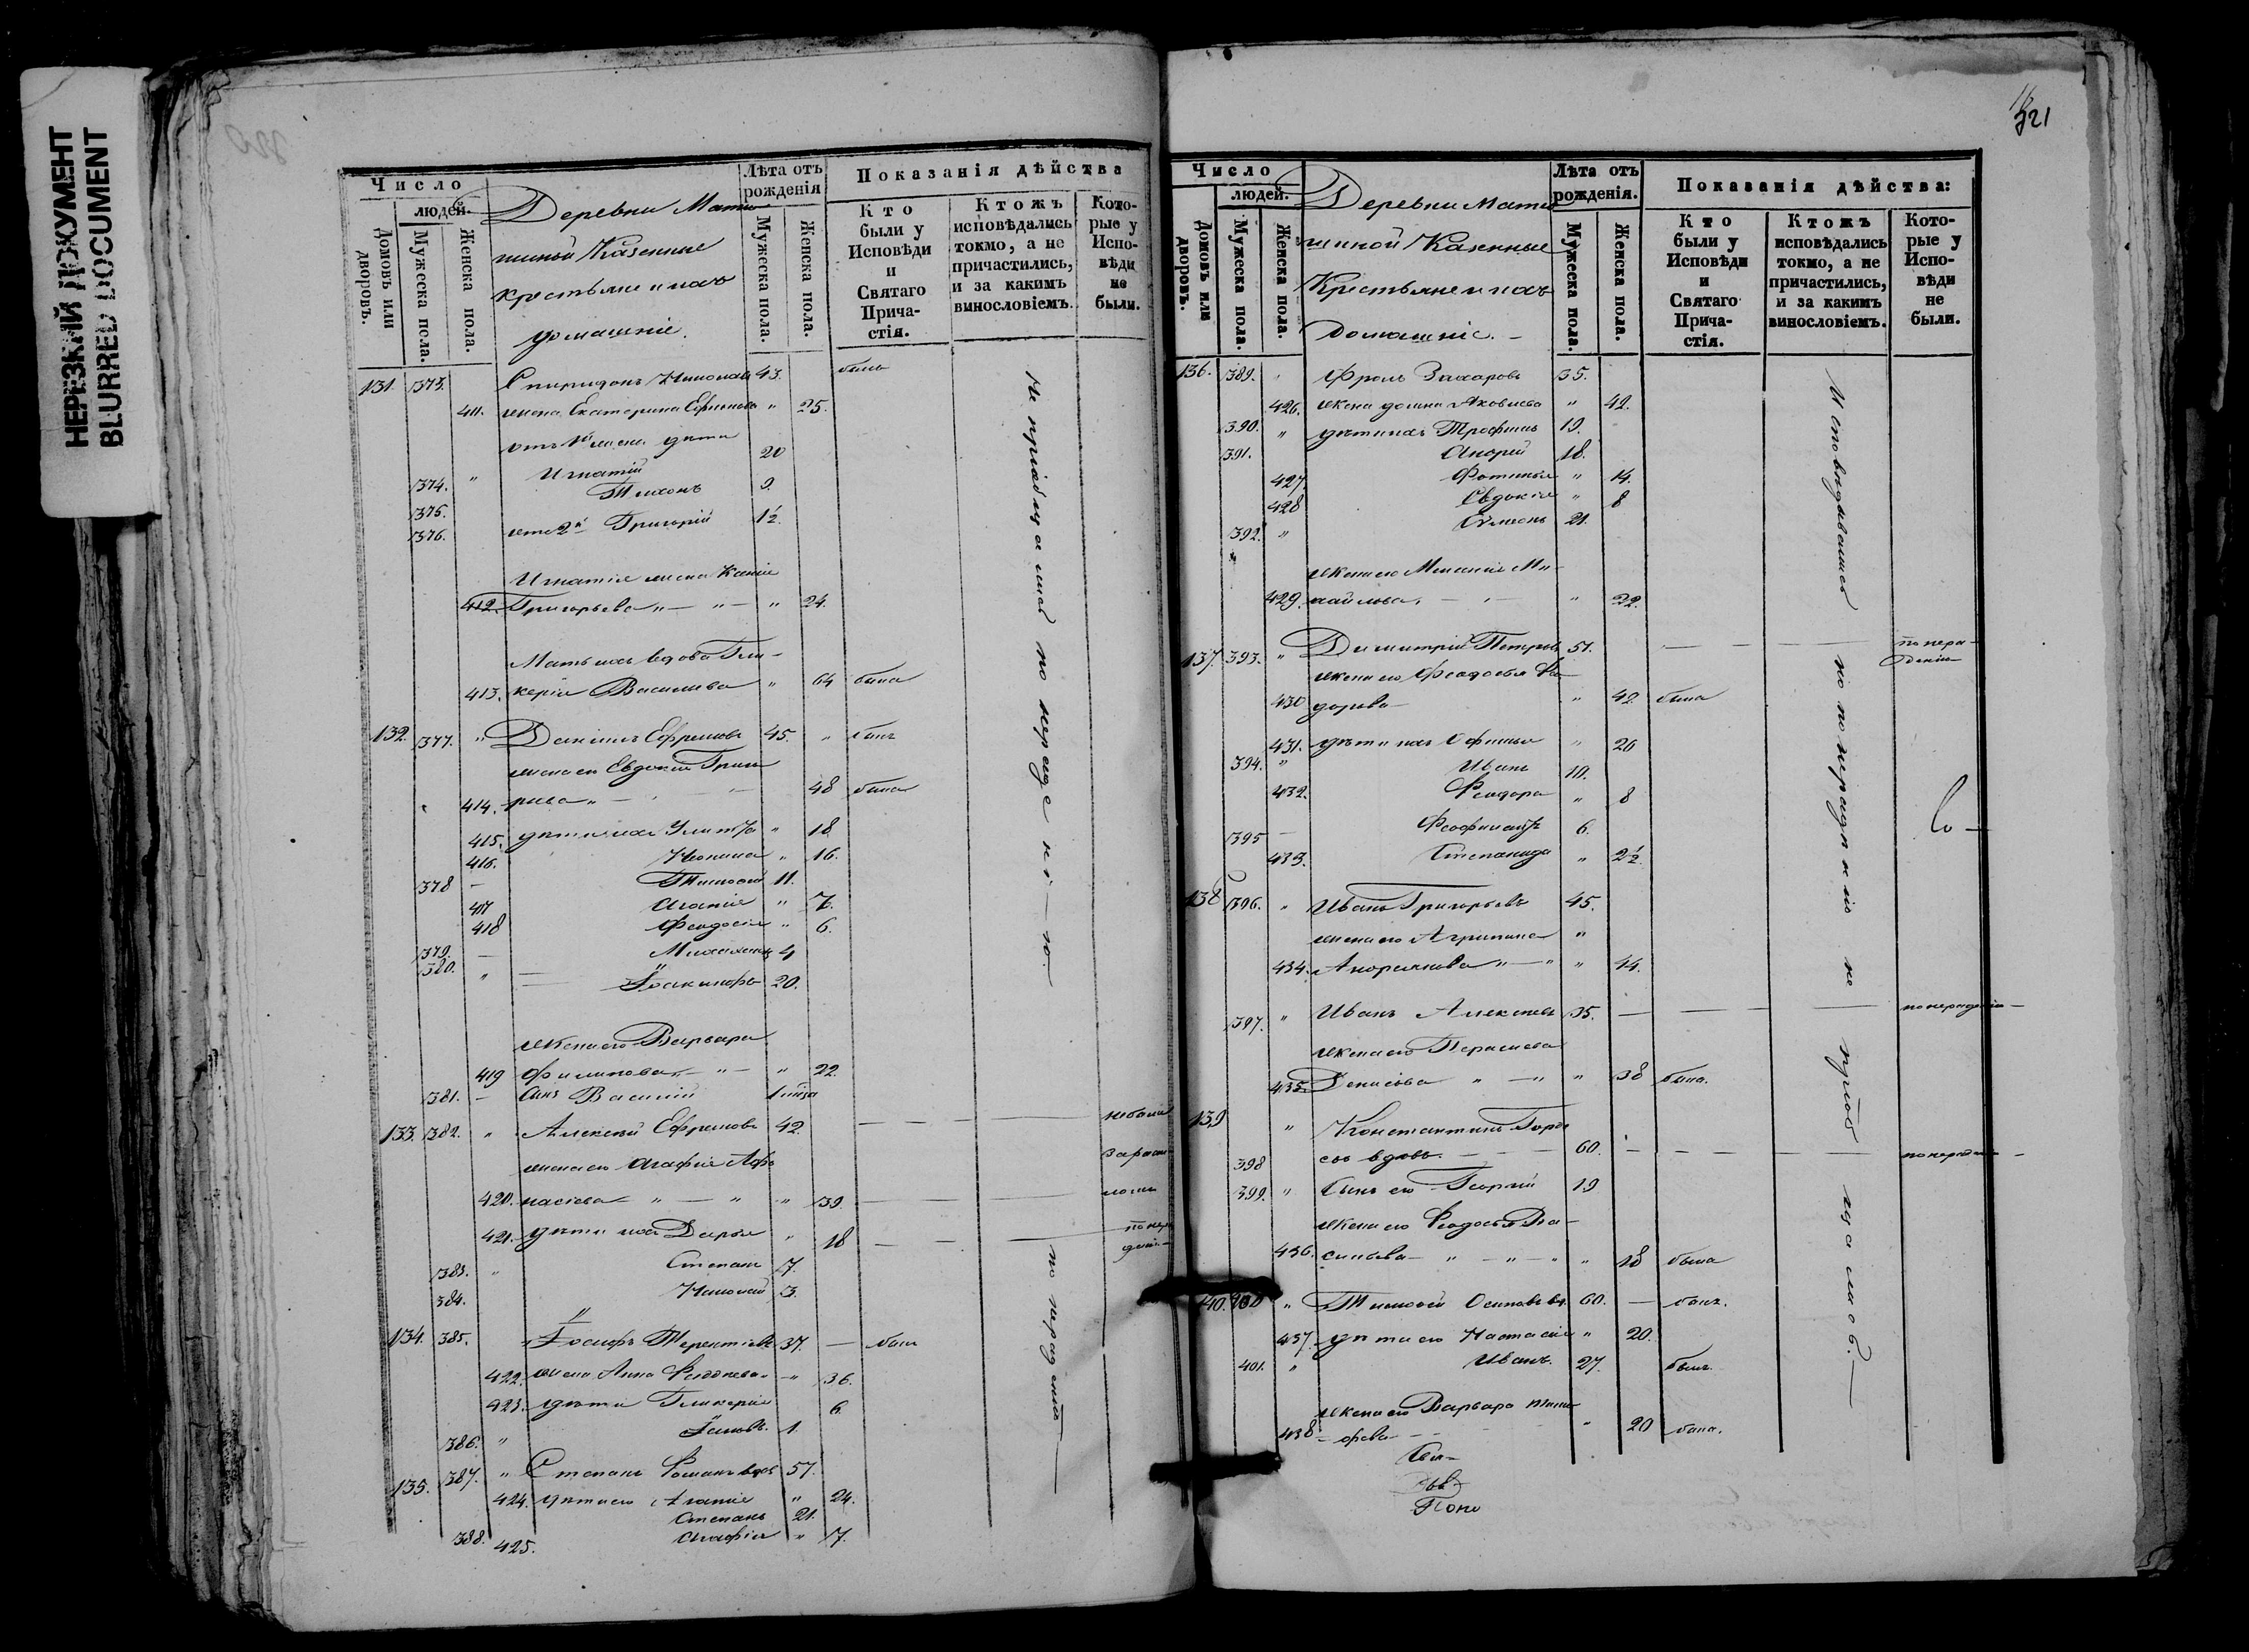 НЕРЕЗКИЙ ДОКУМЕНТ
BLURRED DOCUMENT
Число
людей.
Домовъ или дворовъ.
Мужеска пола.
Женска пола.
Деревни Мати
шиной Казенные
крестьяне и ихъ
домашніе.
Лѣта отъ рожденія
Мужеска пола.
Женска пола.
Показанія дѣйства
Кто были у Исповѣди и Святаго Причастія.
Ктожъ исповѣдались токмо, а не причастились, и за какимъ винословіемъ.
Которые у Исповѣди не были.
131. 373. Спиридонъ Николаевъ 43. былъ
411. жена Екатерина Ефимова " 25.
отъ 1й жены дѣти
374. " Игнатій 20
375. Тихонъ 9.
376. отъ 2й Григорій 1½.
Игнатія жена Ксенія
412. Григорьева " — " — " 24.
Мать ихъ вдова Гли-
413. керія Васильева " 64 была
132. 377. " Даніилъ Ефремовъ 45. " былъ
жена его Евдокія Григо
414. рьева " — 48 была
415. дѣти ихъ Улита " 18
416. " 16.
378 — Тимофей 11.
417 Агапія " 7.
418 Феодосія " 6.
379. — 4
380. " — Іоакимъ 20.
жена его Варвара
419 Филипова " — " 22.
381. — сынъ Василій 1 года
133. 382. " Алексѣй Ефремовъ 42. — — — не былъ
жена его Агафія Афа
420. насіева " — " " 39. —
421. дѣти ихъ Дарья " 18 — — — по нера
дѣнію
383. " Степанъ 7.
384. Николай 3.
134. 385. " Іосифъ Терентіевъ 37. — былъ
422. жена Анна " 36.
423. дѣти Гликерія 6.
386. " Іаковъ. 1.
135. 387. " Степанъ Романъ вдов 57.
424. дѣти его Агапія " 24.
Степанъ 21.
388. 425. Агафія " 7.
по нерадѣнію —
321
Число
людей.
Домовъ или дворовъ.
Мужеска пола.
Женска пола.
Деревни Мати
шиной Казенные
Крестьяне и ихъ
Домашніе. —
Лѣта отъ рожденія.
Мужеска пола.
Женска пола.
Показанія дѣйства:
Кто были у Исповѣди и Святаго Причастія.
Ктожъ исповѣдались токмо, а не причастились, и за какимъ винословіемъ.
Которые у Исповѣди не были.
136. 389. " Фролъ Захаровъ 35.
426. жена Домна Яковлева " 42.
390. " дѣти ихъ Трофимъ 19.
391. Андрей 18.
427. Фотинья " 14.
428 Евдокія " 8
392. " Сѵмеонъ 21.
жена его Меланія Ми-
429. хайлова. — " — " 22.
137. 393. " Димитрій Петровъ 51. — — — по нера-
дѣнію
жена его Феодосья Фе-
430 дорова — " 42 была
431. дѣти ихъ Офимья " 20
394. " Иванъ 10.
432. Феодора " 8
395 — Феофилактъ 6.
433. Степанида " 2½.
138 396. " Иванъ Григорьевъ 45.
жена его Агрипина "
434. Андреянова " — " " 44.
397. " Иванъ Алексѣевъ 35. — — — по нерадѣнію —
жена его Параскева
435. Денисова " — " " 38 была.
139 " Константинъ Горде
398 евъ вдовъ. — — — 60. — — — по нерадѣнію —
399. " Сынъ его Георгій 19
жена его Феодосья Ва-
436. сильева — " — " — " " 18 была
140. 400 " Тимофей Осиповъ вд. 60. — былъ.
437. дѣти его Настасія " 20.
401. " Иванъ. 27. былъ.
жена его Варвара Тимо-
438 — фѣева — " 20 была.
Исповѣдывались но по нерадѣнію не пріобщались. —